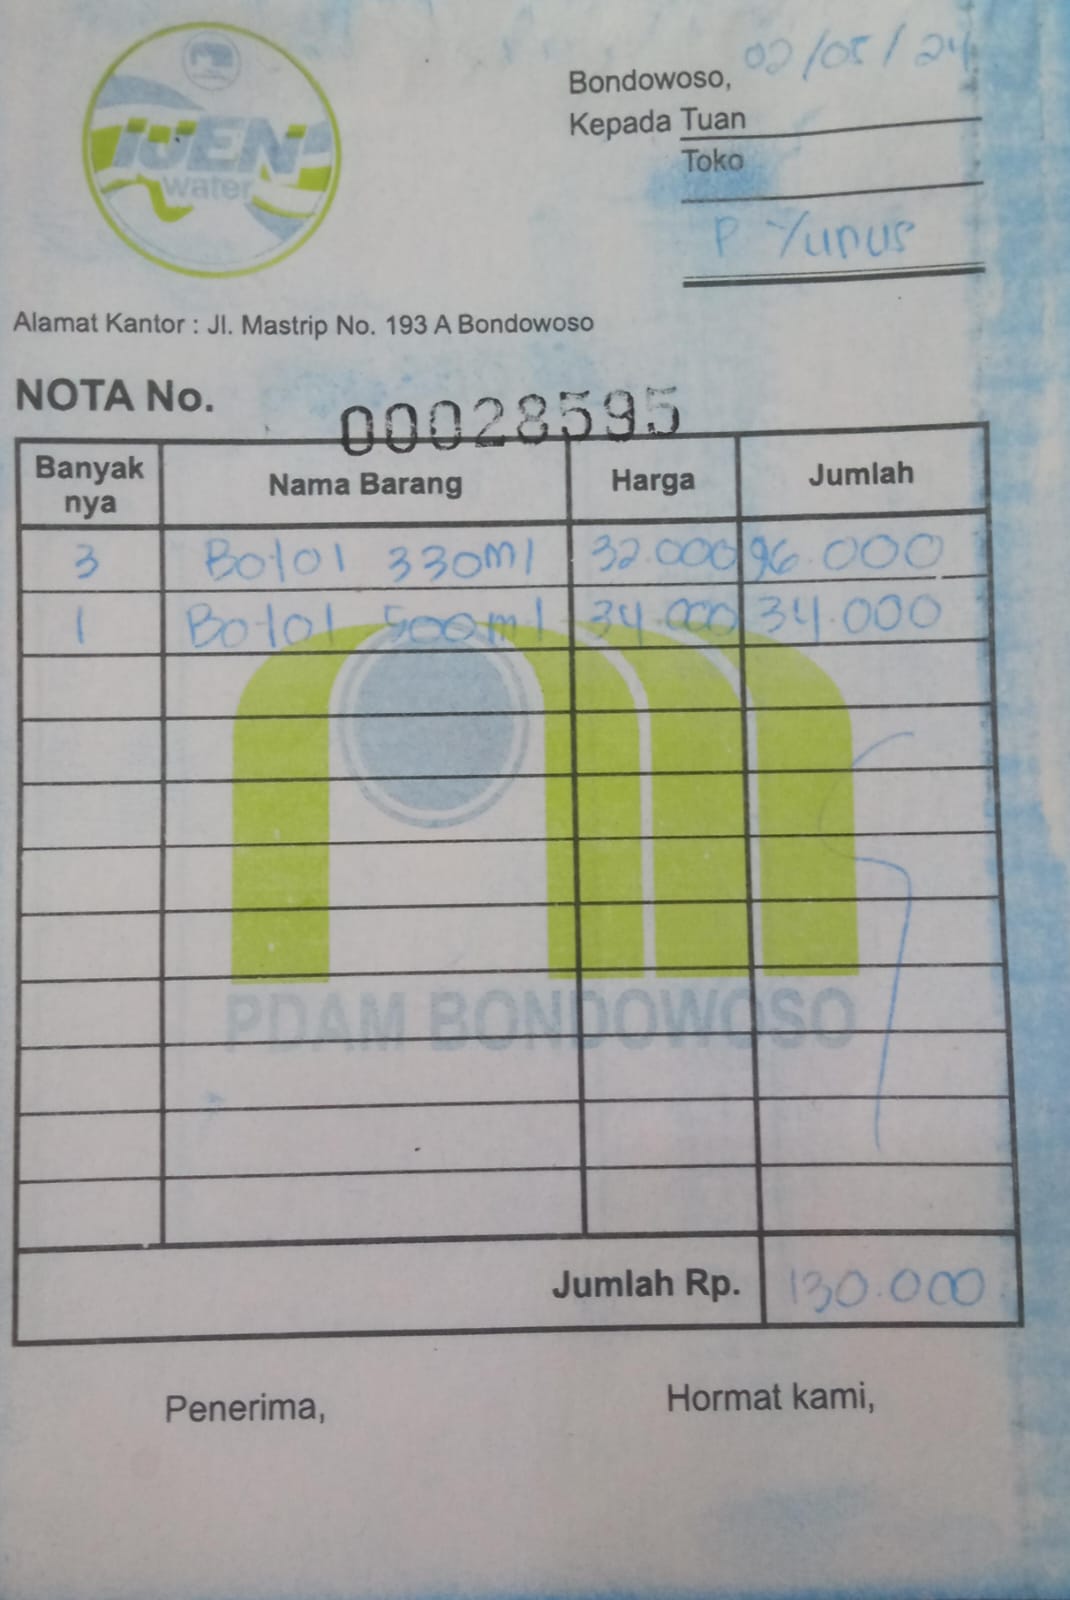 IJEN
water
Bondowoso, 02/05/24
Kepada Tuan
Toko
P Yunus
Alamat Kantor : Jl. Mastrip No. 193 A Bondowoso
NOTA No. 00028595
Banyak nya Nama Barang Harga Jumlah
3 Botol 330ml 32.000 96.000
1 Botol 500ml 34.000 34.000
PDAM BONDOWOSO
Jumlah Rp. 130.000
Penerima, Hormat kami,